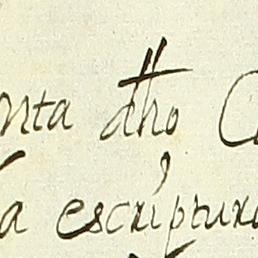 nta dho C
a escriptura